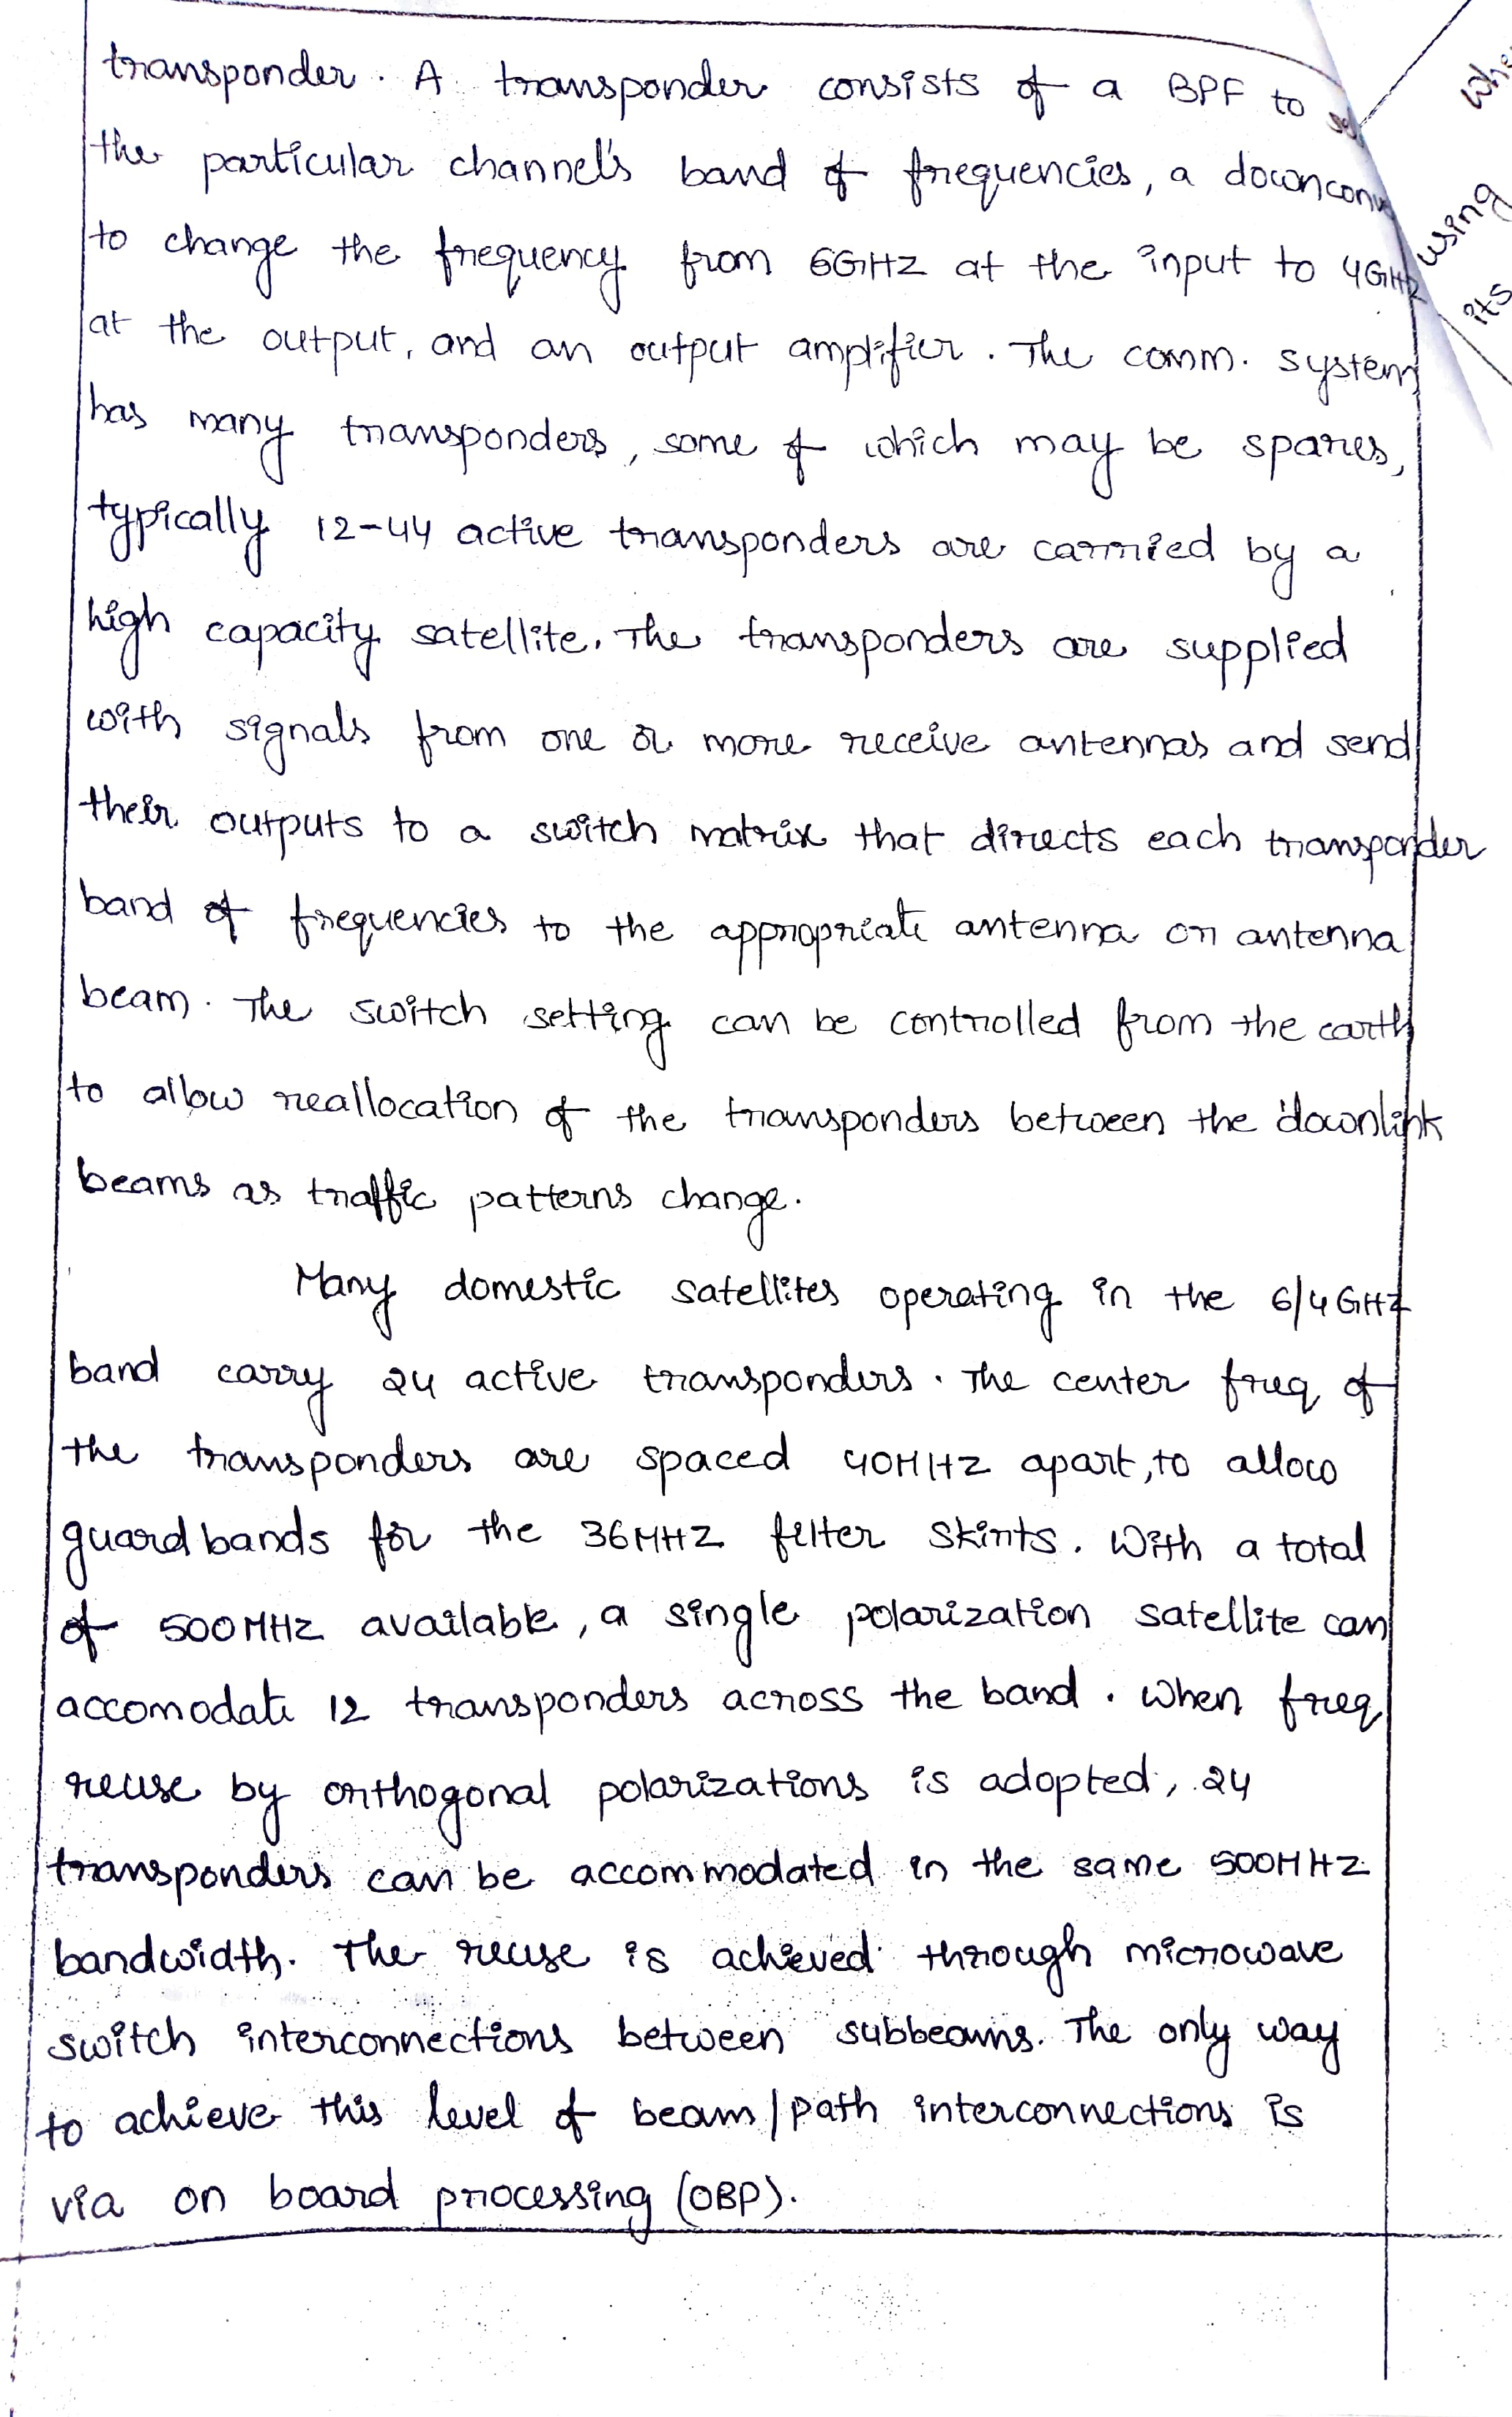 transponder. A transponder consists of a BPF to
the particular channel's band of frequencies, a downconve
to change the frequency from 6GHz at the input to 4GHz
at the output, and an output amplifier. The comm. system
has many transponders, some of which may be spares,
typically 12-44 active transponders are carried by a
high capacity satellite. The transponders are supplied
with signals from one or more receive antennas and send
their outputs to a switch matrix that directs each transponder
band of frequencies to the appropriate antenna or antenna
beam. The switch setting can be controlled from the earth
to allow reallocation of the transponders between the downlink
beams as traffic patterns change.
Many domestic satellites operating in the 6/4GHz
band carry 24 active transponders. The center freq of
the transponders are spaced 40MHz apart, to allow
guard bands for the 36MHz filter skirts. With a total
of 500MHz available, a single polarization satellite can
accomodate 12 transponders across the band. When freq
reuse by orthogonal polarizations is adopted, 24
transponders can be accommodated in the same 500MHz
bandwidth. The reuse is achieved through microwave
switch interconnections between subbeams. The only way
to achieve this level of beam/path interconnections is
via on board processing (OBP).
using
its